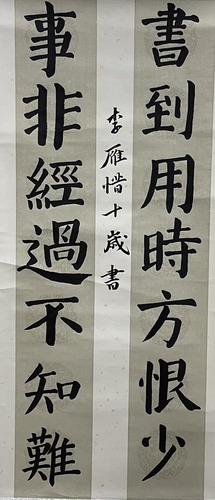 書到用時方恨少
事非經過不知難
李雁惜十歲書